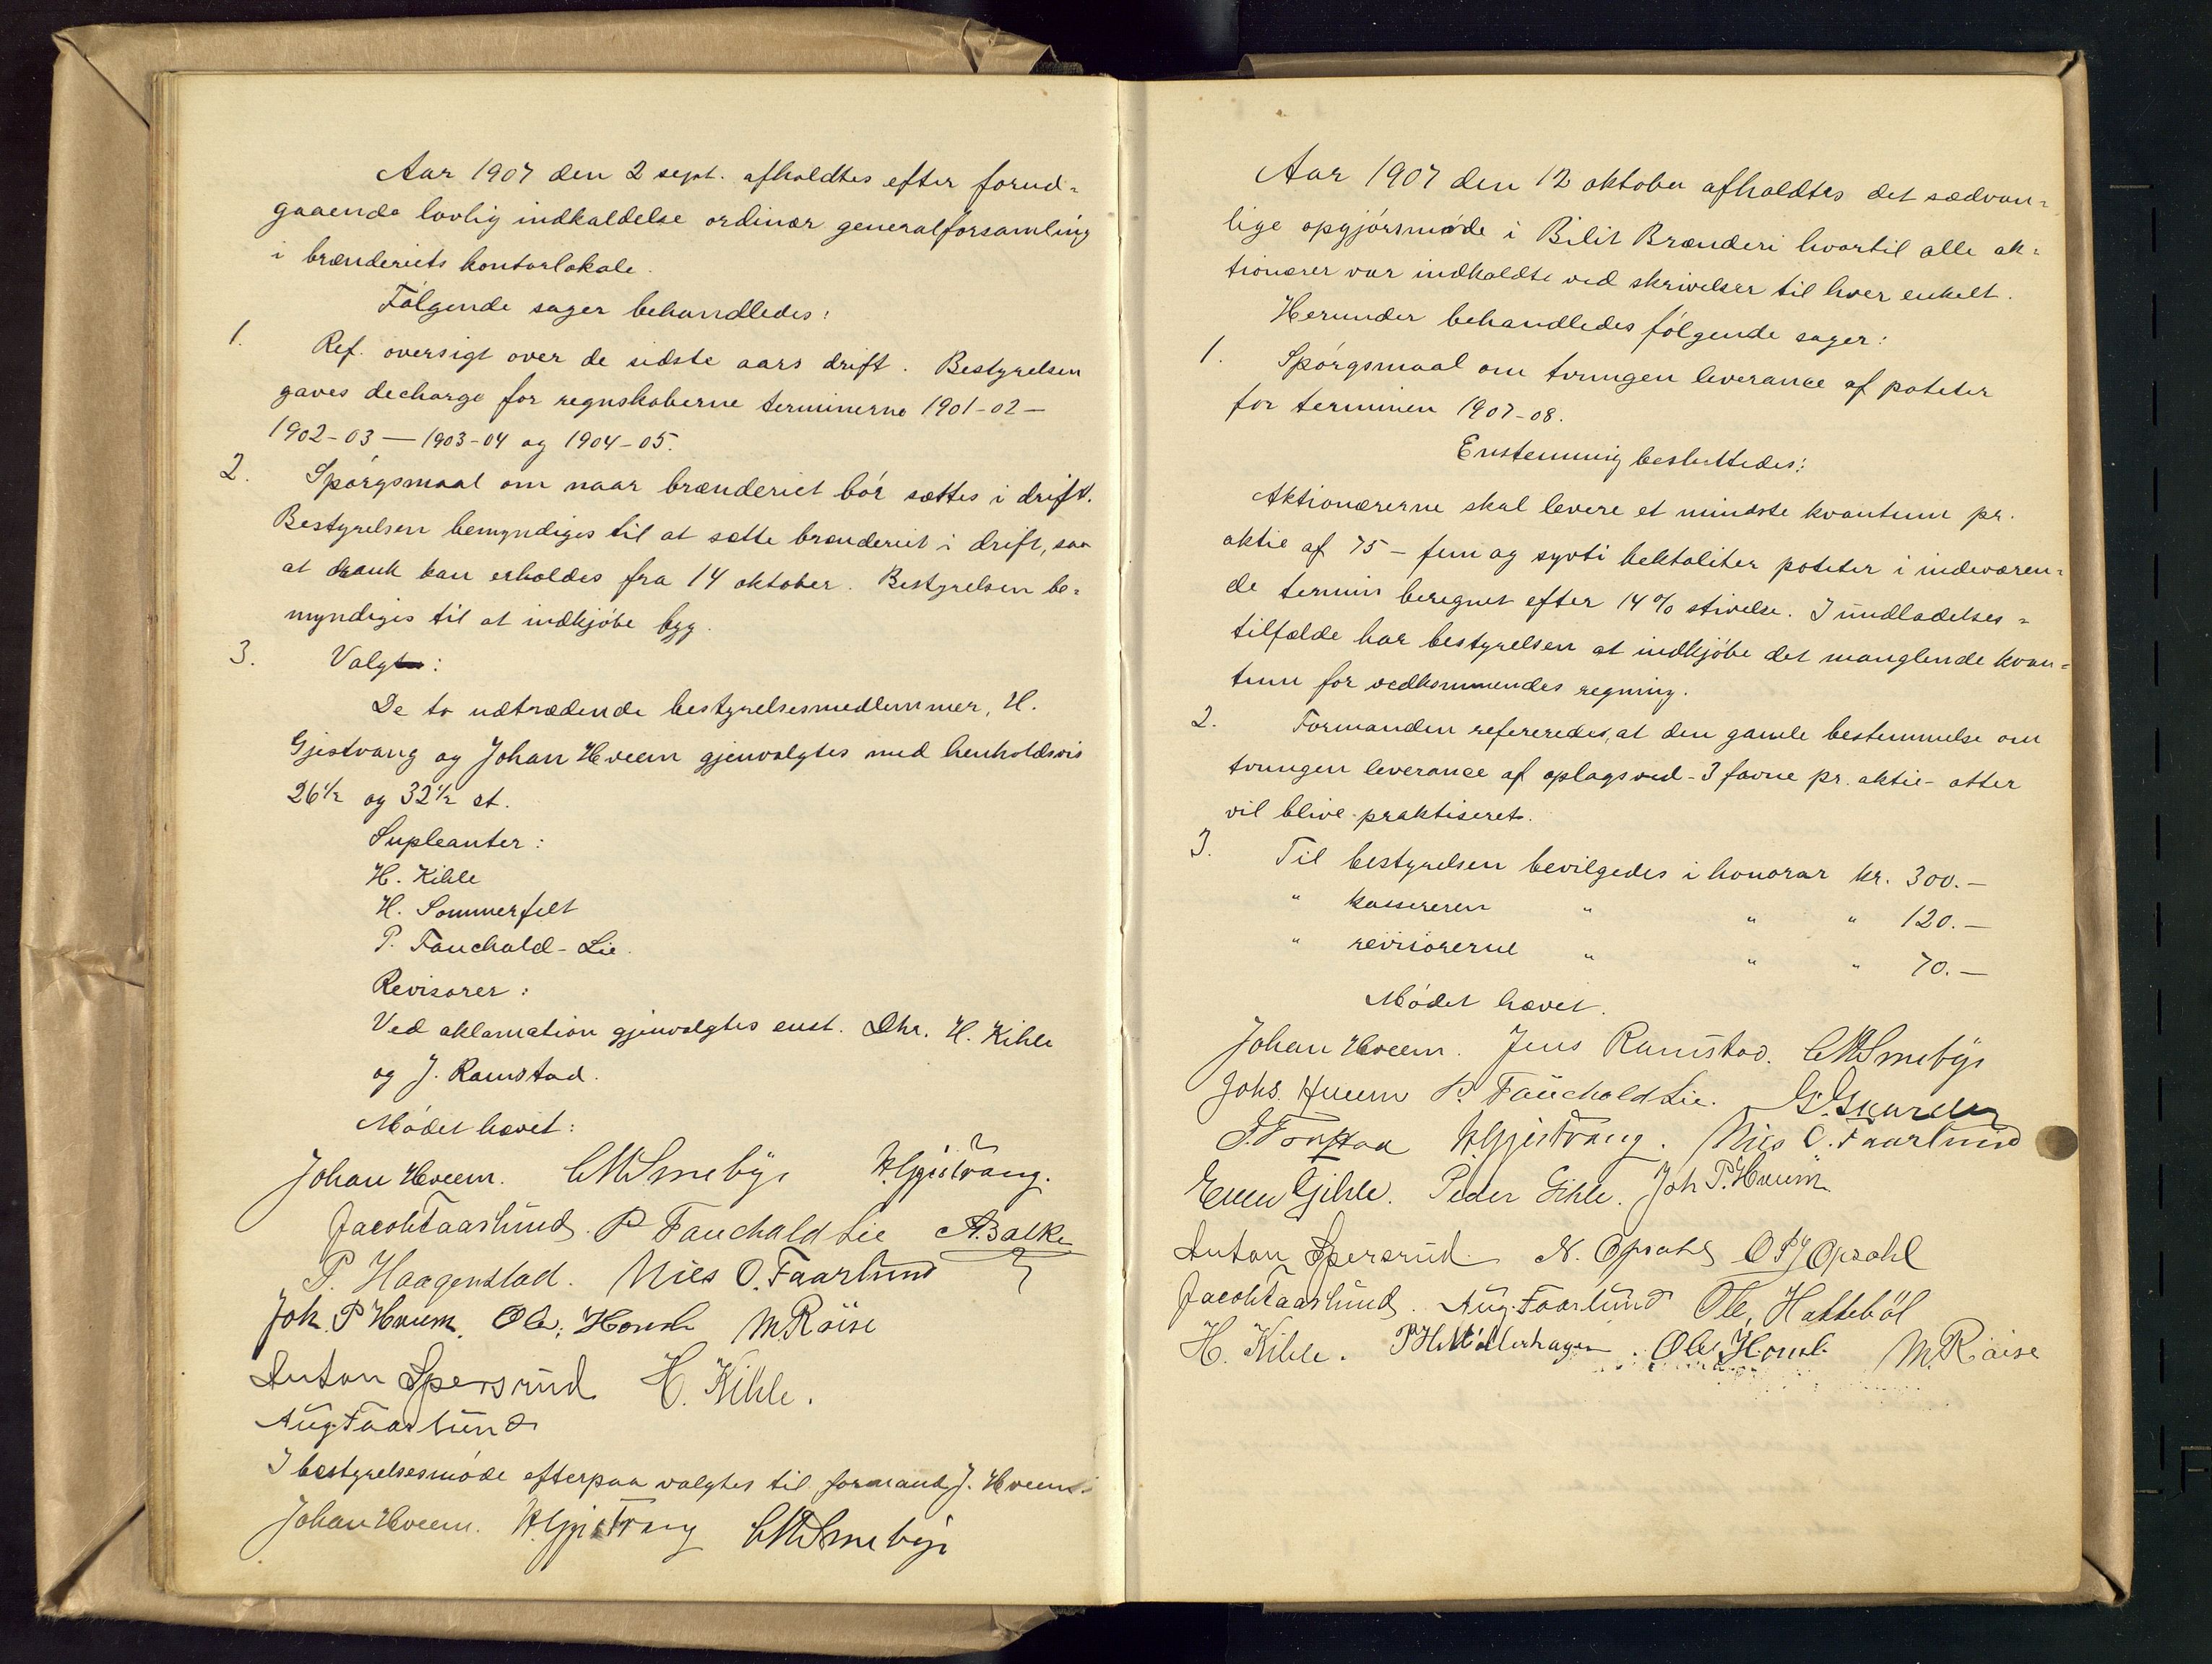 Aar 1907 den 2 sept. afholdtes efter forud-
gaaende lovlig indkaldelse ordinær generalforsamling
i brænderiets kontorlokale.
Følgende sager behandledes:
1. Ref. oversigt over de sidste aars drift. Bestyrelsen
gaves decharge for regnskaberne terminerne 1901-02 —
1902-03 — 1903-04 og 1904-05.
2. Spørgsmaal om naar brænderiet bør sættes i drift.
Bestyrelsen bemyndiges til at sætte brænderiet i drift, saa
at drank kan erholdes fra 14 oktober. Bestyrelsen be-
myndiges til at indkjøbe byg.
3. Valg:
De to udtrædende bestyrelsesmedlemmer, H.
Gjestvang og Johan Hveem gjenvalgtes med henholdsvis
26½ og 32½ st.
Supleanter:
H. Kihle
H. Sommerfelt
P. Fauchald-Lie.
Revisorer:
Ved aklamation gjenvalgtes enst. Dhr. H. Kihle
og J. Ramstad.
Mødet hævet:
Johan Hveem. CMSmeby H Gjestvang.
Jacob Faarlund. P Fauchald Lie A. Balke
P. Haagenstad. Nils O. Faarlund
Joh. P Hveem. Ole, M Røise
Anton Spersrud H. Kihle.
Aug. Faarlund
I bestyrelsesmøde efterpaa valgtes til formand J. Hveem.
Johan Hveem. H Gjestvang CMSmeby
Aar 1907 den 12 oktober afholdtes det sædvan-
lige opgjørsmøde i Bilit Brænderi hvortil alle ak-
tionærer var indkaldte ved skrivelser til hver enkelt.
Herunder behandledes følgende sager:
1. Spørgsmaal om tvungen leverance af poteter
for terminen 1907-08.
Enstemmig besluttedes:
Aktionærerne skal levere et mindste kvantum pr.
aktie af 75 - fem og syvti hektoliter poteter i indeværen-
de termin beregnet efter 14% stivelse. I undladelses-
tilfælde har bestyrelsen at indkjøbe det manglende kvan-
tum for vedkommendes regning.
2. Formanden refereredes, at den gamle bestemmelse om
tvungen leverance af oplagsved - 3 favne pr. aktie - atter
vil blive praktiseret.
3. Til bestyrelsen bevilgedes i honorar kr. 300.-
" kassereren " " " 120.-
" revisorerne " " " 70.-
Mødet hævet.
Johan Hveem. Jens Ramstad. CMSmeby
Johs. Hveem P. Fauchald Lie.
H Gjestvang. Nils O. Faarlund
Even Gihle. Peder Gihle. Joh P. Hveem
Anton Spersrud. N. Opsahl O P Opsahl
Jacob Faarlund. Aug. Faarlund Ole, Hattebøl
H. Kihle. P H Møllerhagen. Ole M. Røise